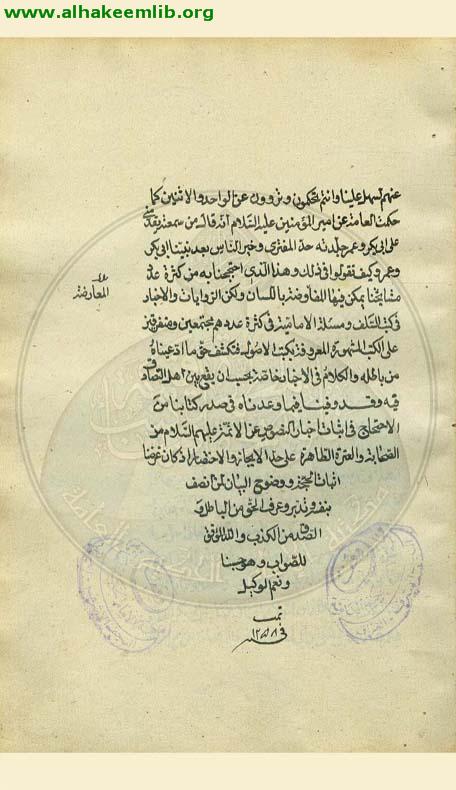 www.alhakeemlib.org
عنهم تسهل علينا وانتم تحكمون وتروون عن الواحد والاثنين كما
حكمت العامة عن امير المؤمنين عليه السلام انه قال من سمعته يقدمني
على ابى بكر وعمر جلدته حد المفترى وخير الناس بعد نبينا ابى بكر
وعمر وكيف تقولوا فى ذلك وهذا الذى احتججنا به من كثرة عدد
المعارضة
مشايخنا يمكن فيها المفاوضة باللسان ولكن الروايات والاخبار
فى كتب السلف ومسئلة الامامية فى كثرة عددهم مجتمعين ومتفرقين
على الكتب المشهورة المعروفة بكتب الاصول فتكشف حق ما ادعيناه
من باطله والكلام فى الاخبار خاصة يجب ان يقع بين اهل التصادق
فيه وقد وفينا فيما وعدناه فى صدر كتابنا من
الاحتجاج فى اثبات اخبار النصوص عن الائمة عليهم السلام من
الصحابة والعترة الطاهرة على حد الايجاز والاختصار اذ كان غرضنا
اثبات الحجة ووضوح البيان لمن انصف
بنفسه وتدبر وعرف الحق من الباطل و
الصدق من الكذب والله الموفق
للصواب وهو حسبنا
ونعم الوكيل
تمت
فى سنة ١٢٧٨